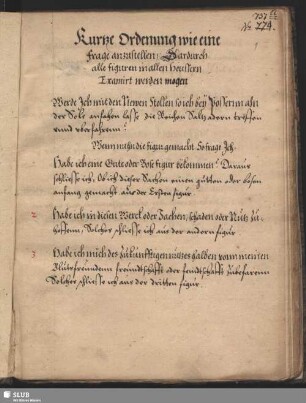 707
No. 224.
Kurtze Ordenung wie eine
frage anzustellen, Dardurch
alle figuren in allen heusern
Examirt werden mogen
Werde Ich mit den Newen Stollen so ich bey
der Sole anfahen lasse die Reichen Saltz adern treffen
vnnd vberfahrenn?
Wenn nuhn die figur gemacht So frage Ich
Habe ich eine Gute oder Bose figur bekommen? Daraus
schliesse ich, Ob ich dieser Sachen einen gutten oder bosen
anfang gemacht aus der Ersten figur
2 Habe ich in diesen Werck oder Sachen, schaden oder Nutz zu
hoffenn, Solches schliesse ich aus der andern figur
3 Habe ich mich des zukunfftigen nutzes halben vonn meinen
Blutsfreundenn freundtschafft oder feindtschafft zubefarenn
Solches schliesse ich aus der dritten figur
SLUB